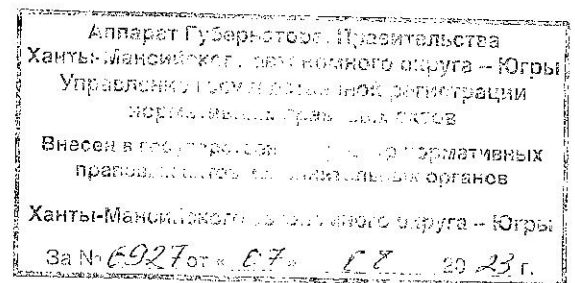 Аппарат Губернатора, Правительства
Ханты-Мансийского автономного округа – Югры
Управление государственной регистрации
нормативных правовых актов
Внесен в государственный нормативных
правовых органов
Ханты-Мансийского автономного округа – Югры
За № 6927 от « 07 » 20 23 г.